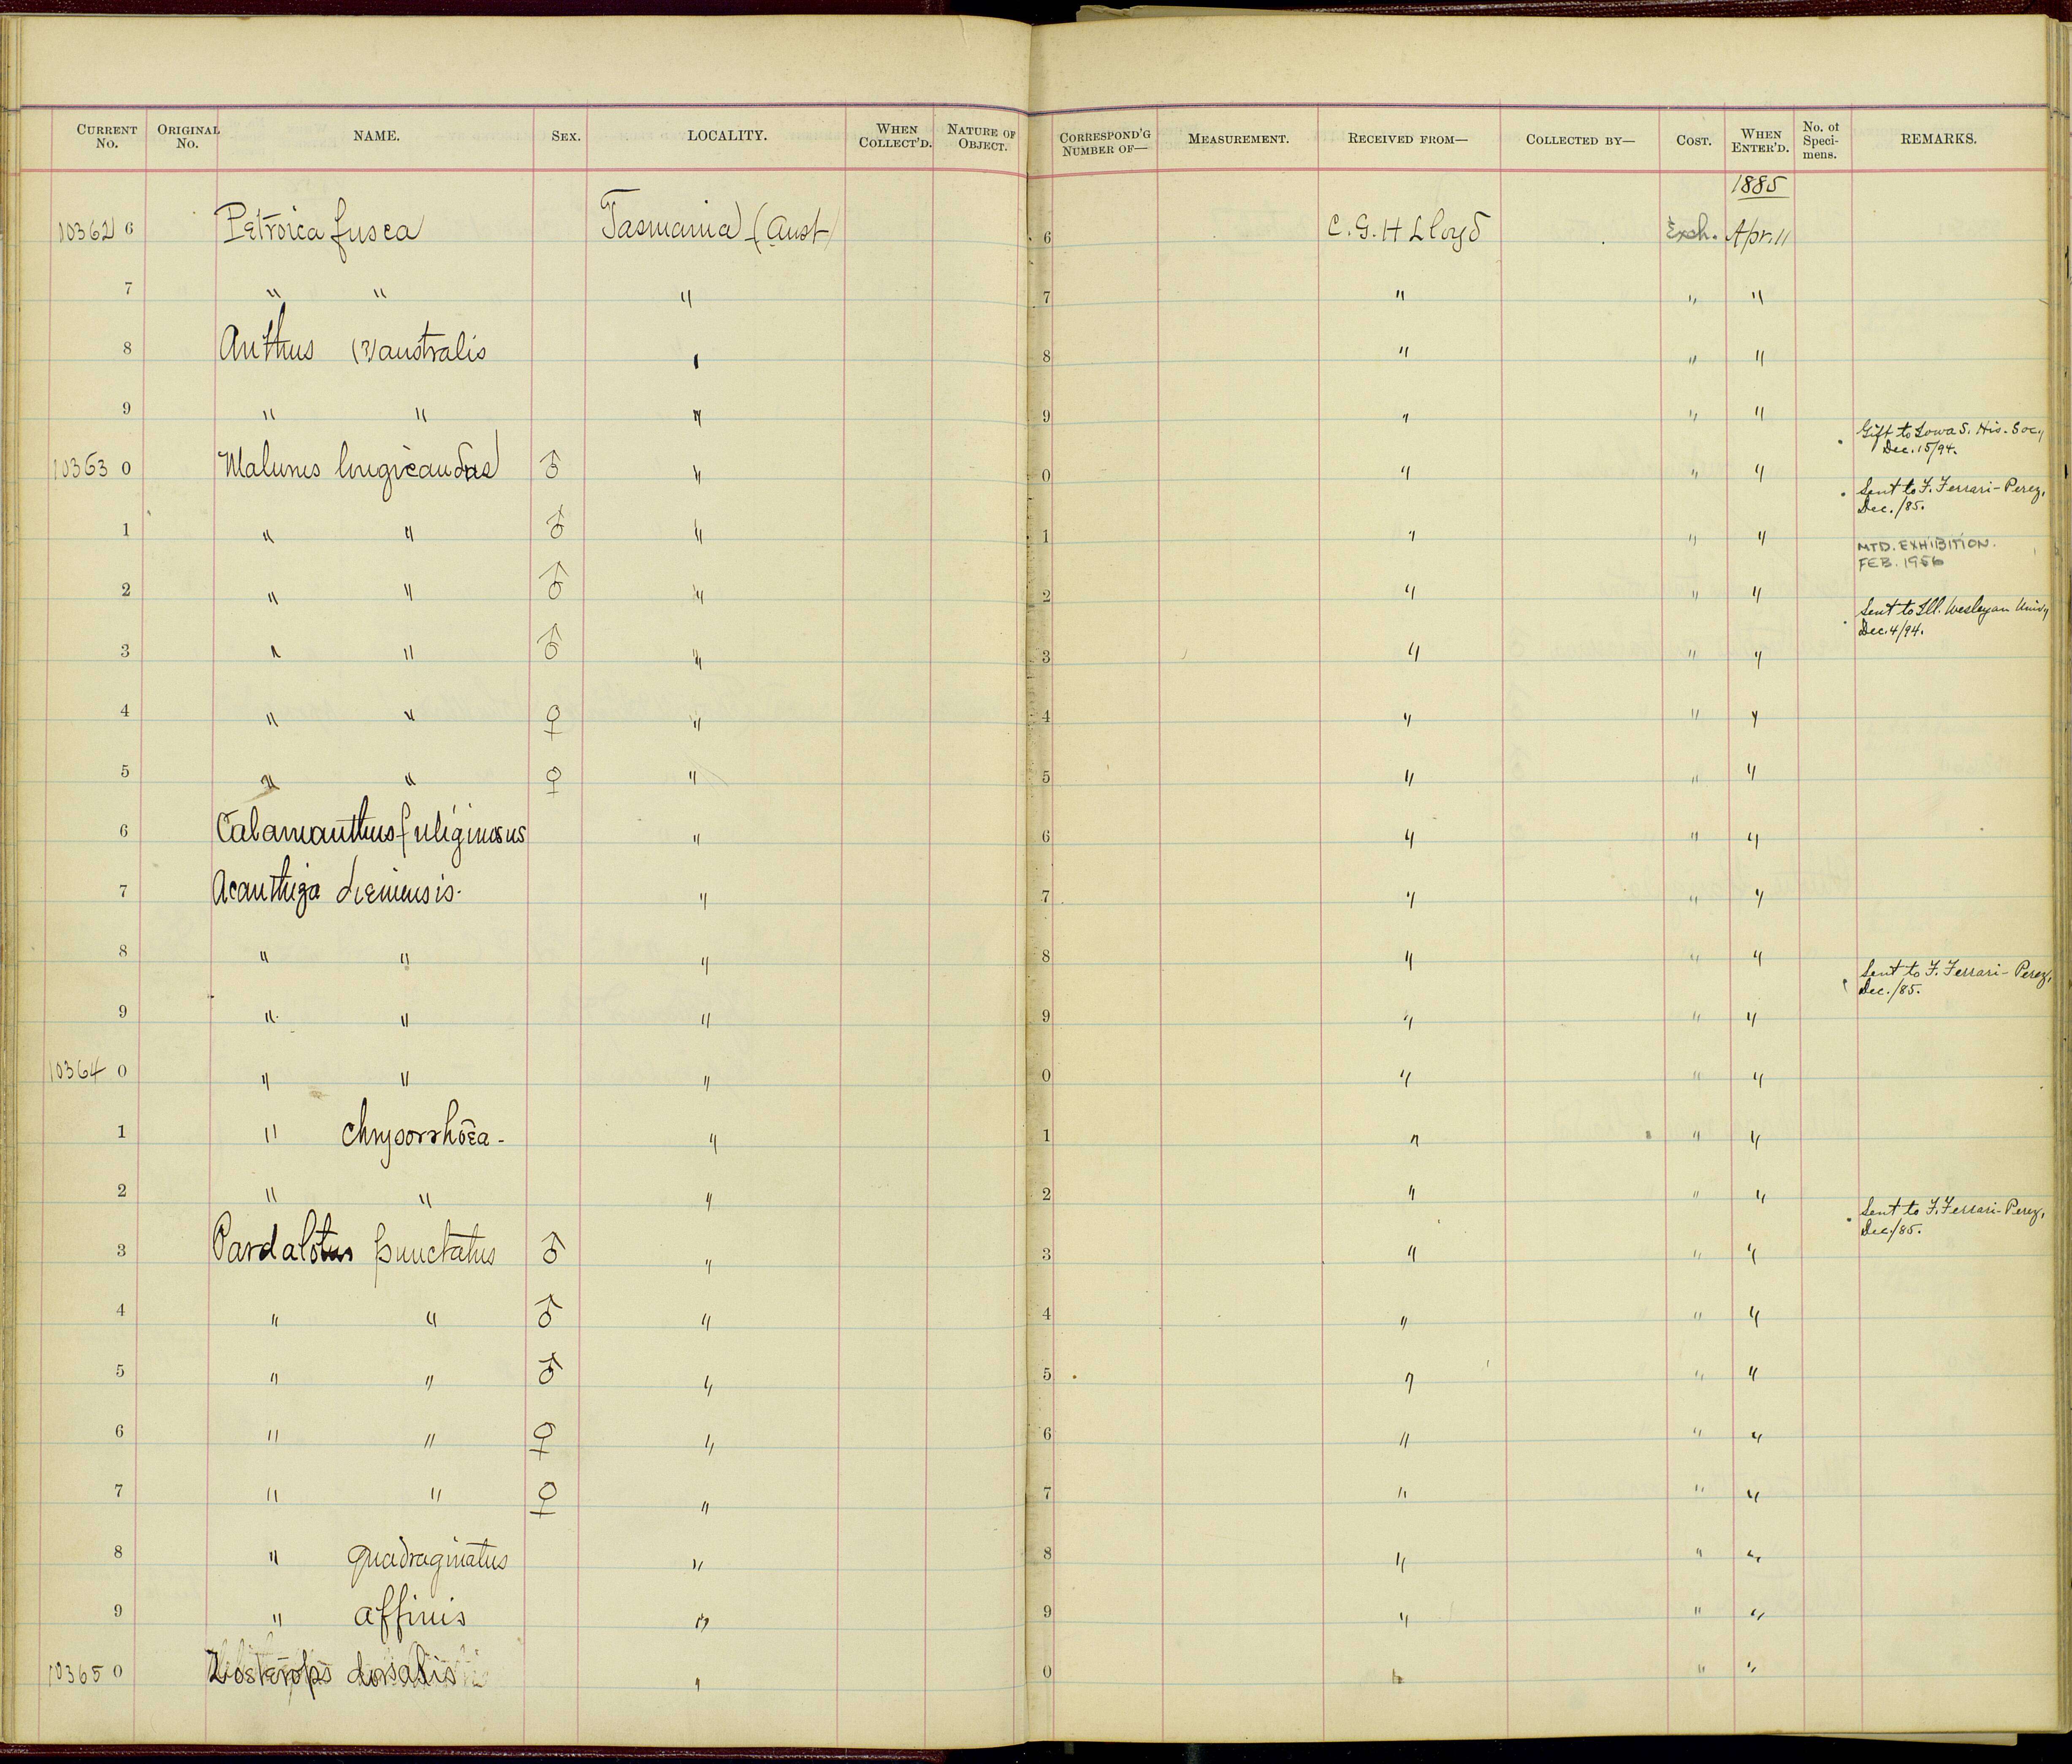 CURRENT No. ORIGINAL No. NAME. SEX. LOCALITY. WHEN COLLECT'D. NATURE OF OBJECT. CORRESPOND'G NUMBER OF— MEASUREMENT. RECEIVED FROM— COLLECTED BY— COST. WHEN ENTER'D. No. of Speci-mens. REMARKS.
1885
10362 6 Petroica fusca Tasmania (Aust) 6 C. G. H Lloyd Exch. Apr. 11
7 " " " 7 " " "
8 Anthus (?) australis " 8 " " "
9 " " " 9 " " "
10363 0 Malurus longicaudus ♂ " 0 " " " Gift to Iowa S. His. Socy Dec. 15/94.
1 " " ♂ " 1 " " " Sent to F. Ferrari-Perez, Dec./85.
2 " " ♂ " 2 " " " MTD. EXHIBITION. FEB. 1956
3 " " ♂ " 3 " " " Sent to Ill. Wesleyan Univy Dec. 4/94.
4 " " ♀ " 4 " " "
5 " " ♀ " 5 " " "
6 Calamanthus fuliginosus " 6 " " "
7 Acanthiza diemensis. " 7 " " "
8 " " " 8 " " "
9 " " " 9 " " " Sent to F. Ferrari-Perez, Dec./85.
10364 0 " " " 0 " " "
1 " chrysorrhoea - " 1 " " "
2 " " " 2 " " "
3 Pardalotus punctatus ♂ " 3 " " " Sent to F. Ferrari-Perez, Dec./85.
4 " " ♂ " 4 " " "
5 " " ♂ " 5 " " "
6 " " ♀ " 6 " " "
7 " " ♀ " 7 " " "
8 " quadraginatus " 8 " " "
9 " affinis " 9 " " "
10365 0 Zosterops dorsalis " 0 " " "